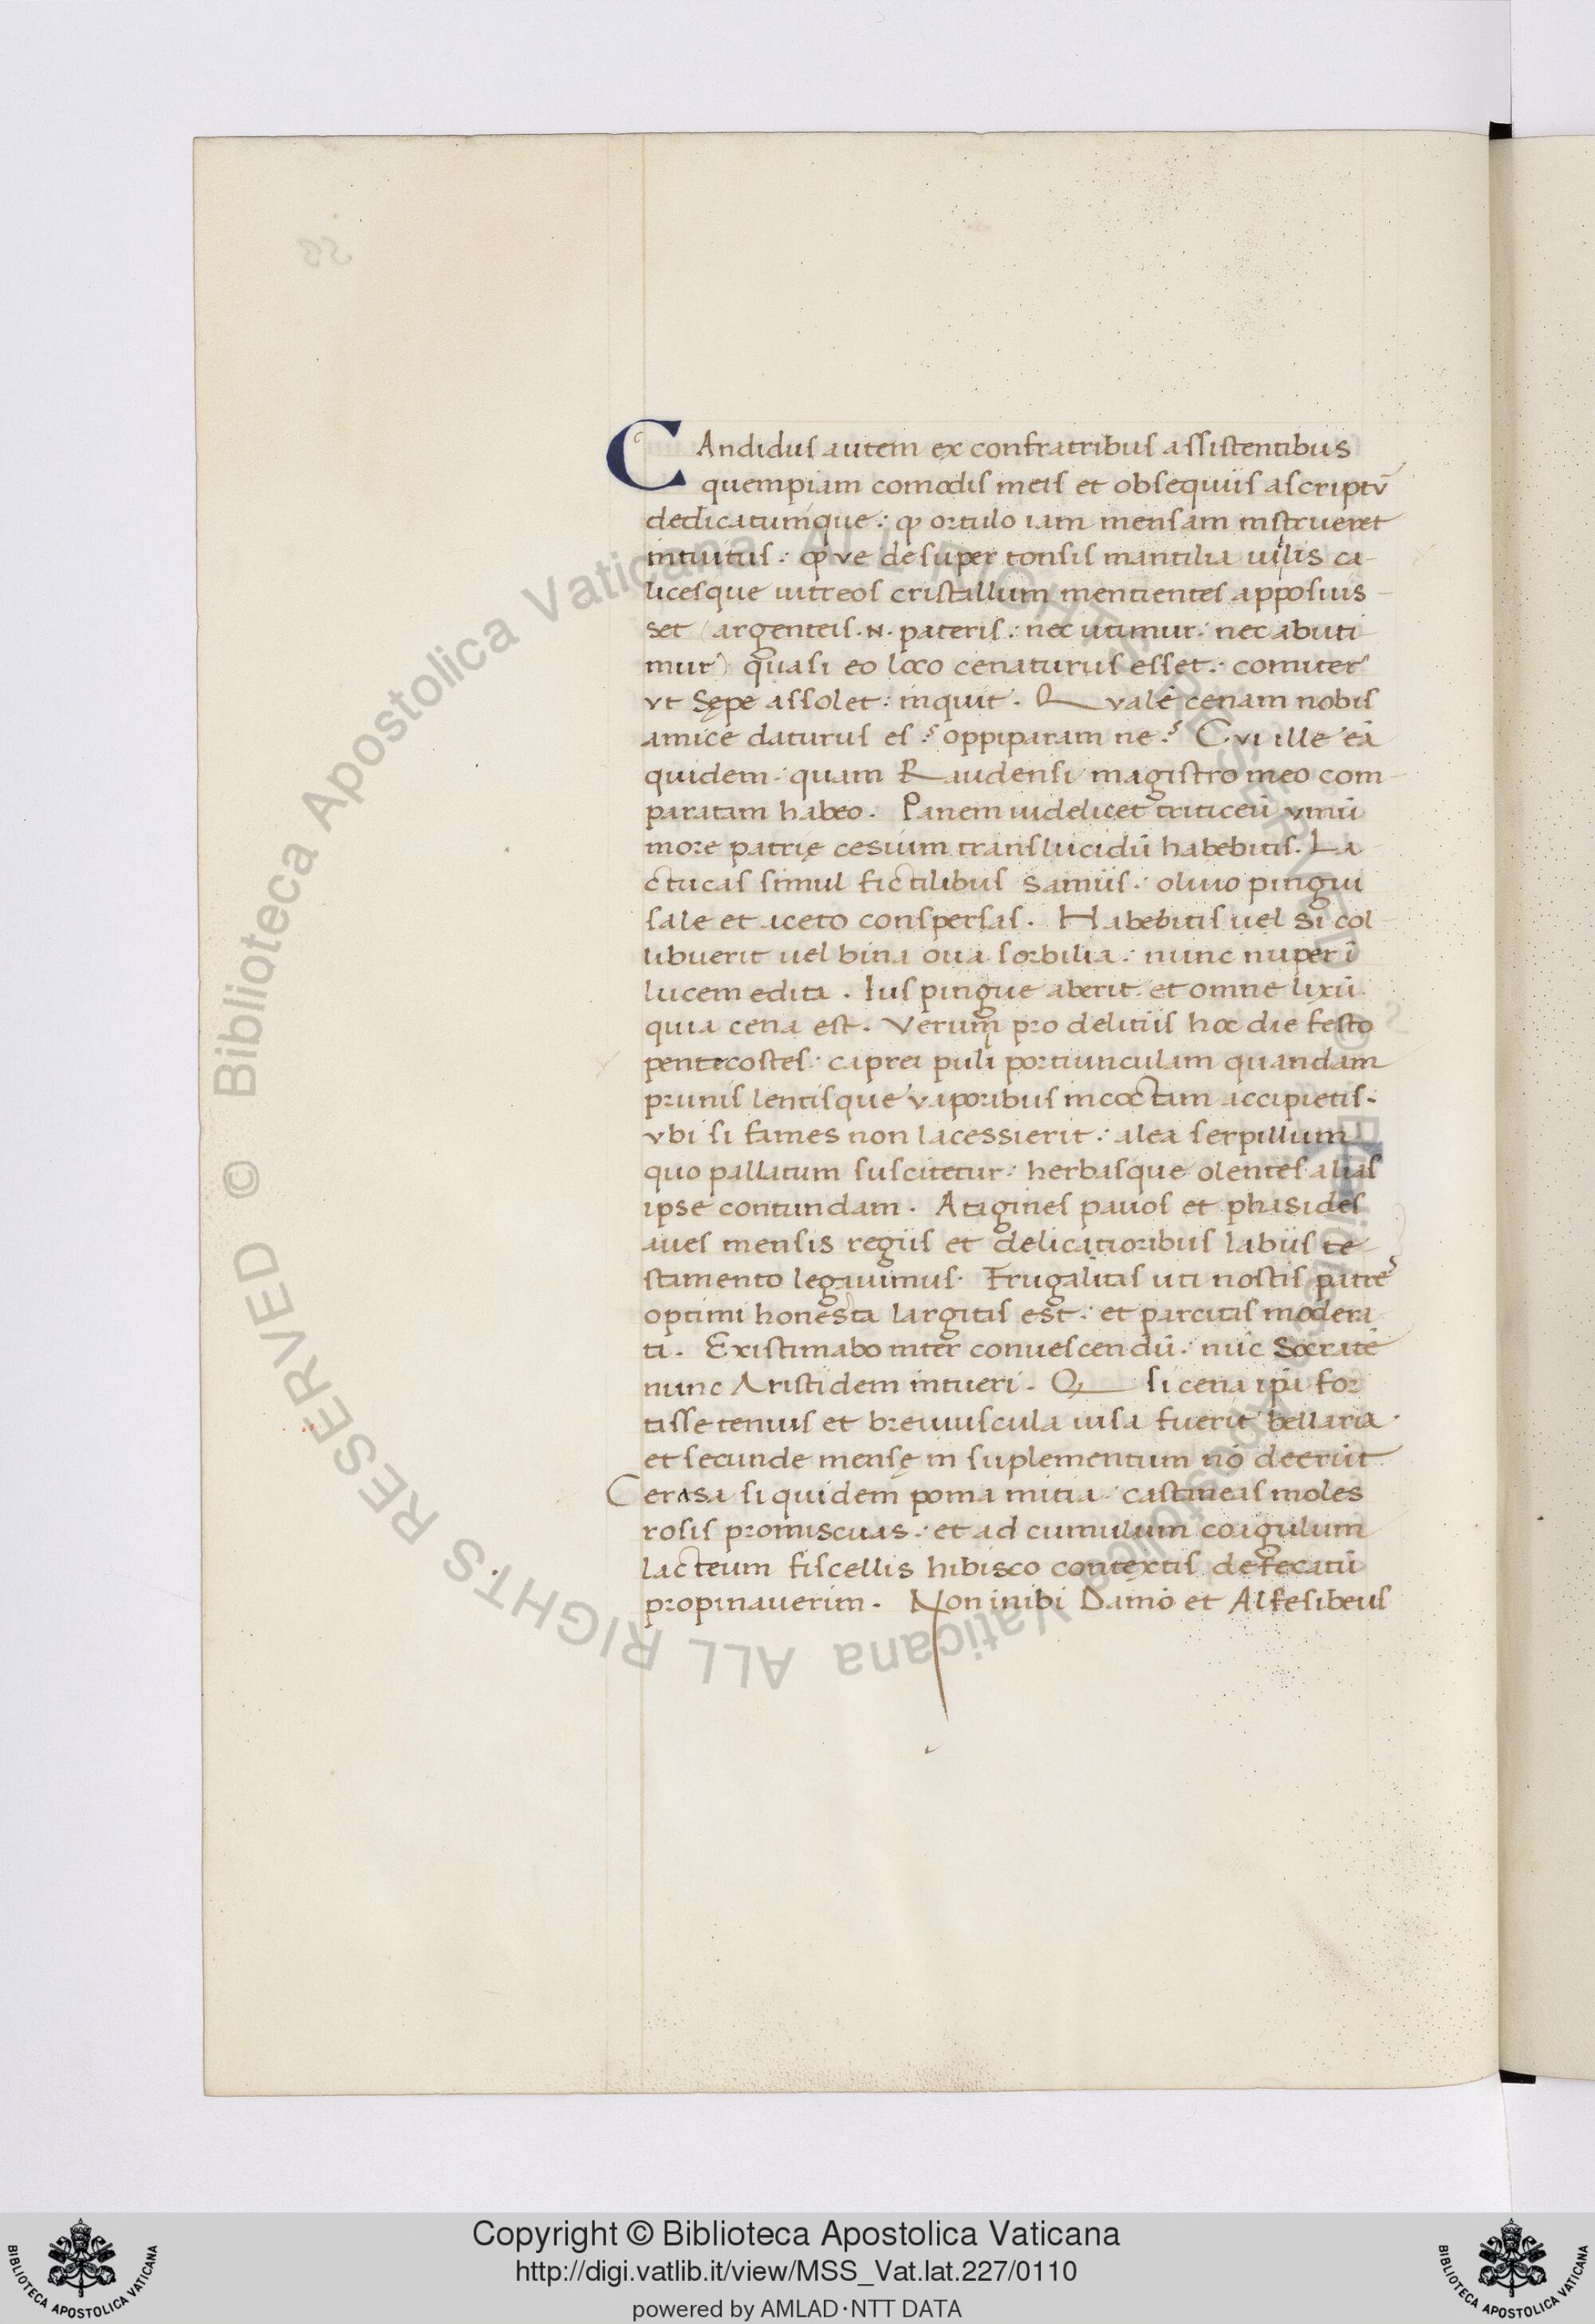 CAndidus autem ex confratribus assistentibus
quempiam comodis meis et obsequiis ascriptũ
dedicatumque: ꝙ ortulo iam mensam instrueret
intuitus: ꝙ ve desuper tonsis mantilia uilis ca-
licesque uitreos cristallum mentientes apposuis-
set (argenteis .N. pateris: nec utimur: nec abuti
mur) quasi eo loco cenaturus esset: comiter
vt sępe assolet: inquit. Qvalẽ cenam nobis
amice daturus es? oppiparam ne? Cvi ille eã
quidem: quam Raudensi magistro meo com-
paratam habeo. Panem uidelicet triticeũ vinũ
more patrię cesium translucidũ habebitis. La-
ctucas simul fictilibus samiis: oliuo pingui
sale et aceto conspersas. Habebitis uel si col-
libuerit uel bina oua sorbilia: nunc nuper ĩ
lucem edita. Ius pingue aberit et omne lixũ
quia cena est. Verum pro delitiis hoc die festo
pentecostes: caprei puli portiunculam quandam
prunis lentisque vaporibus incoctam accipietis.
vbi si fames non lacessierit: alea serpillum
quo pallatum suscitetur: herbasque olentes alias
ipse contundam. Atagines pauos et phasides
aues mensis regiis et delicatioribus labiis te-
stamento legauimus. Frugalitas uti nostis patrẽs
optimi honesta largitas est: et parcitas modera
ta. Existimabo inter conuescendũ: nũc Socratẽ
nunc Aristidem intueri. Qꝫ si cena ipa for
tisse tenuis et breuiuscula uisa fuerit bellaria
et secunde mensę in suplementum nõ deerũt
Cerasa siquidem poma mitia: castaneas moles
rosis promiscuas: et ad cumulum coagulum
lacteum fiscellis hibisco contextis defecatũ
propinauerim. Non inibi Damõ et Alfesibeus
Copyright © Biblioteca Apostolica Vaticana
http://digi.vatlib.it/view/MSS_Vat.lat.227/0110
powered by AMLAD·NTT DATA
BIBLIOTECA APOSTOLICA VATICANA
BIBLIOTECA APOSTOLICA VATICANA
© Biblioteca Apostolica Vaticana ALL RIGHTS RESERVED
© Biblioteca Apostolica Vaticana ALL RIGHTS RESERVED